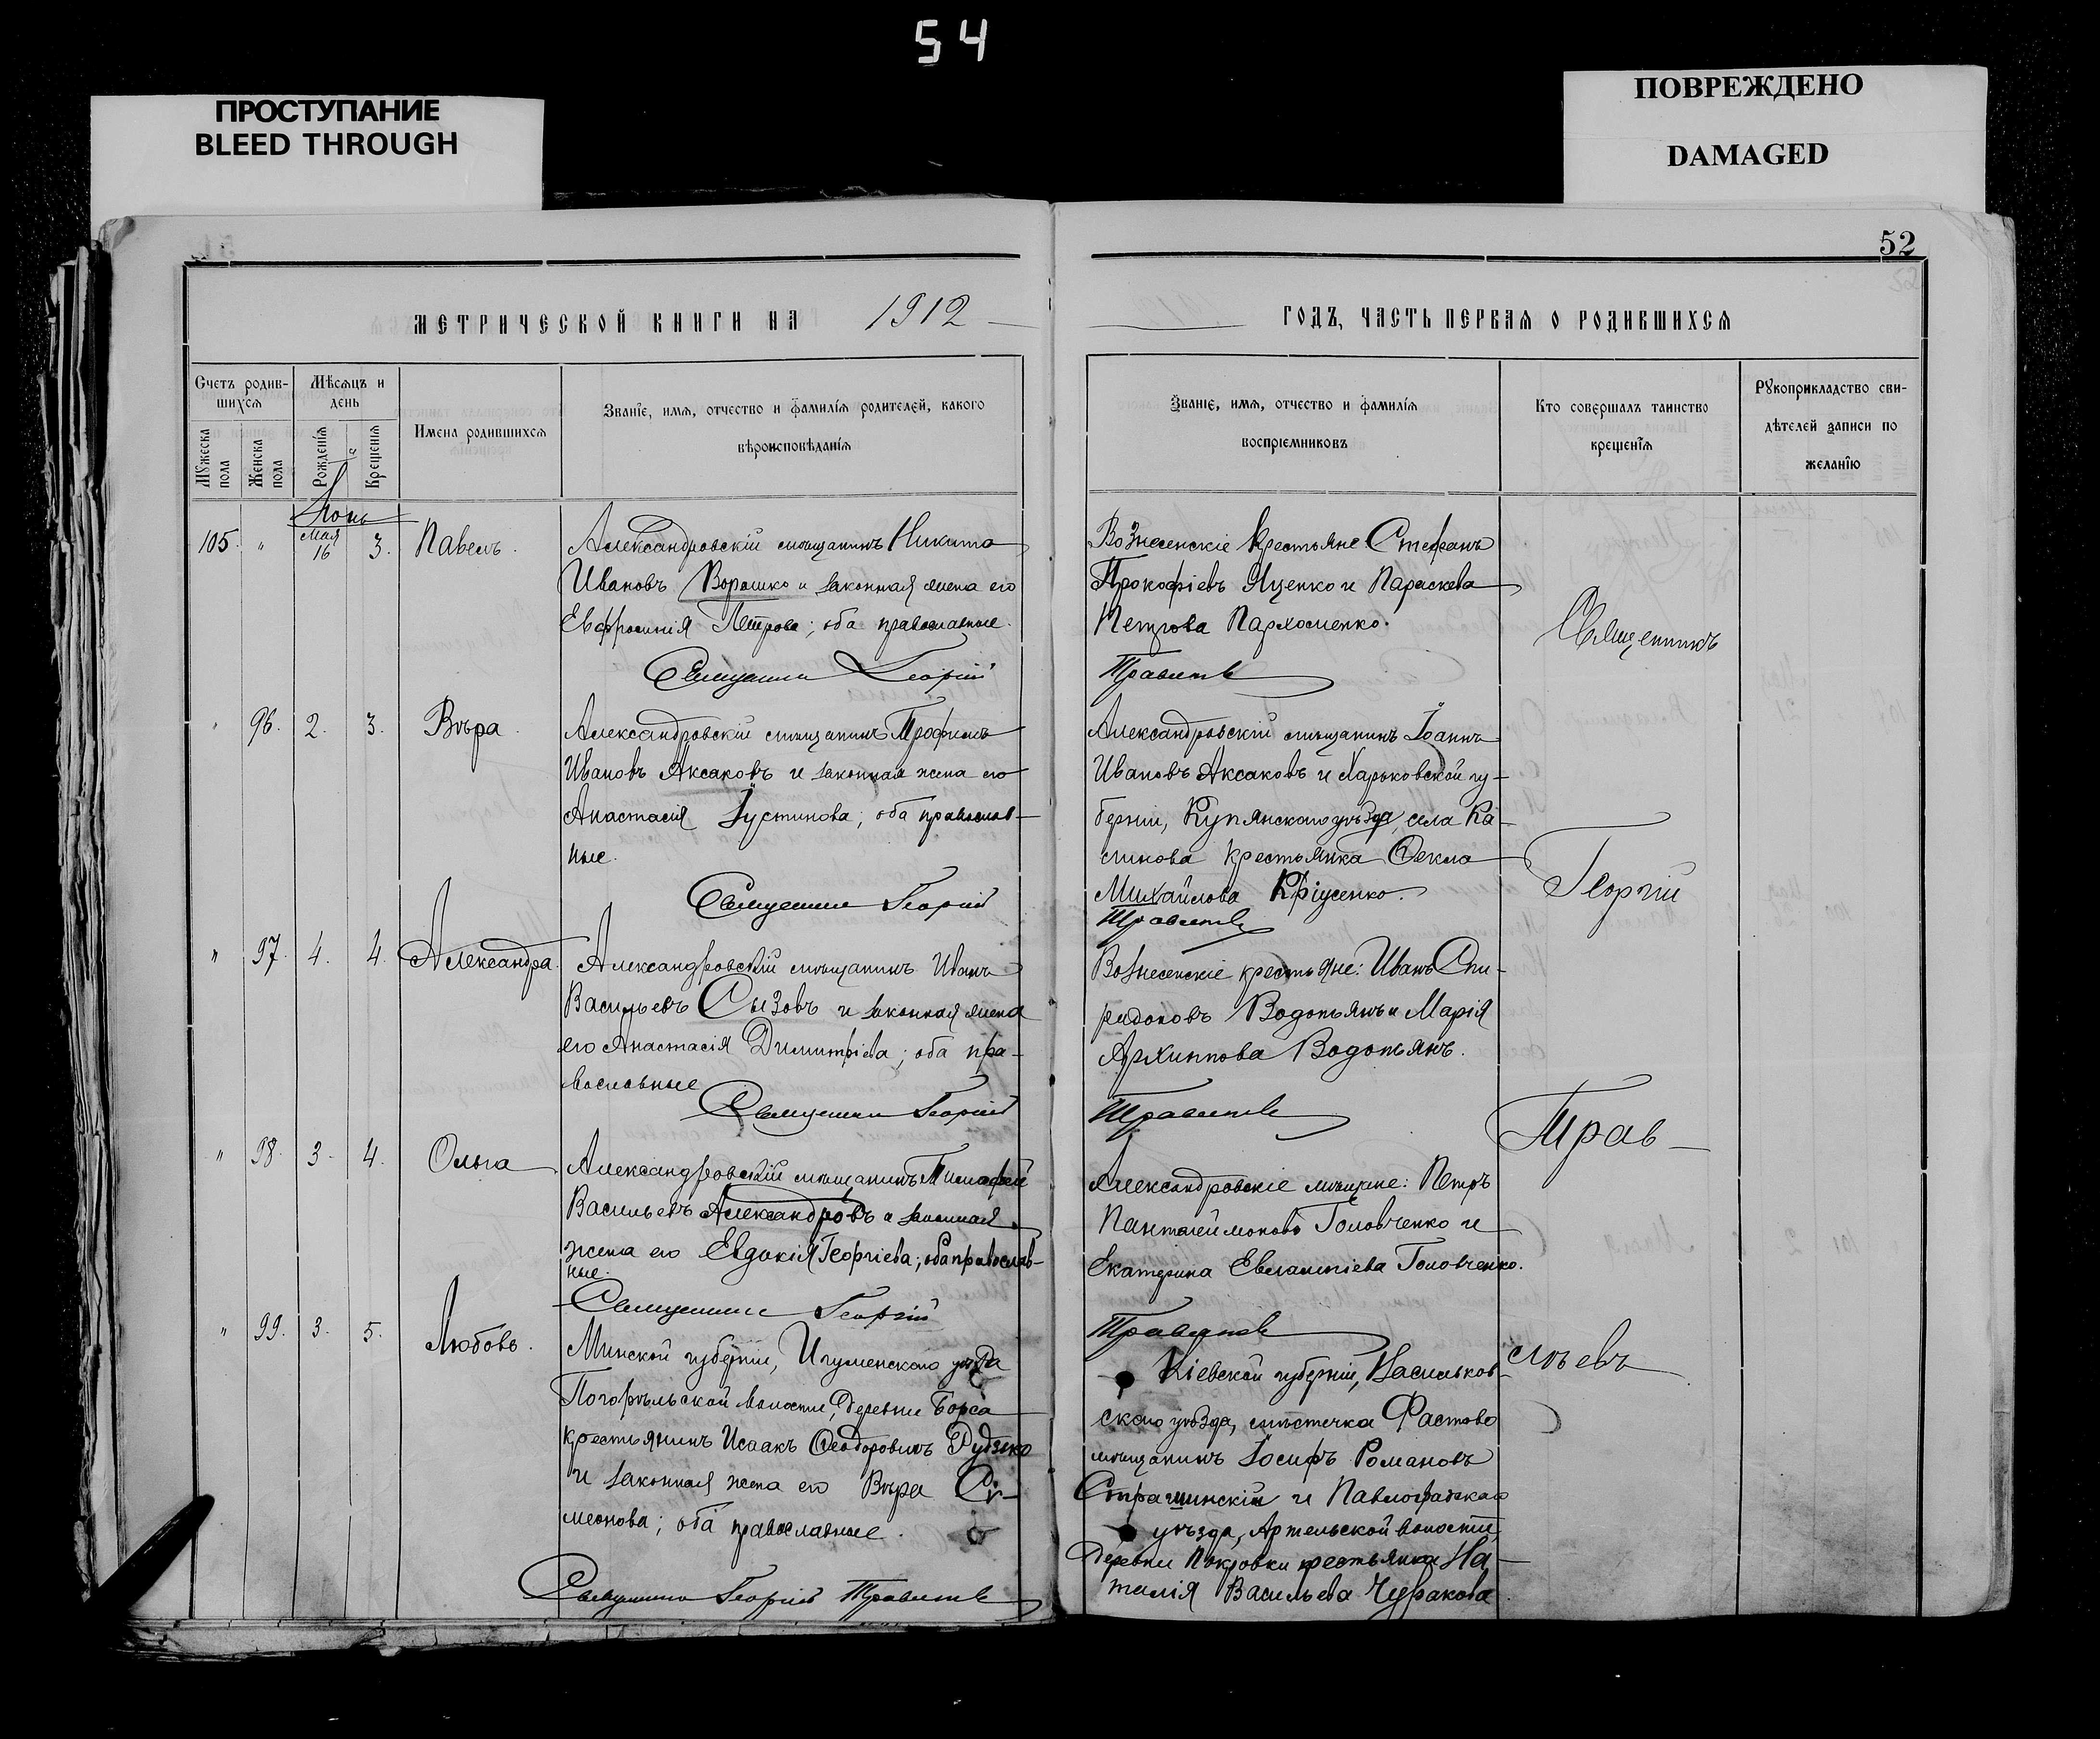 54
ПРОСТУПАНИЕ
BLEED THROUGH
ПОВРЕЖДЕНО
DAMAGED
52
МЕТРИЧЕСКОЙ КНИГИ НА 1912
ГОДЪ, ЧАСТЬ ПЕРВАЯ О РОДИВШИХСЯ
Счетъ родив-
шихся
Мѣсяцъ и
день
Имена родившихся
Званіе, имя, отчество и фамилія родителей, какого
вѣроисповѣданія
Мужеска пола
Женска пола
Рожденія
Крещенія
Званіе, имя, отчество и фамилія
воспріемниковъ
Кто совершалъ таинство
крещенія
Рукоприкладство сви-
дѣтелей записи по
желанію
Іюнь
105. " Мая 16 3. Павелъ.
Александровскій мѣщанинъ Никита
Ивановъ Ворошко и законная жена его
Евфросинія Петрова; оба православные.
Священникъ Георгій
Вознесенскіе крестьяне: Стефанъ
Прокофіевъ Яценко и Параскева
Петрова Пархоменко.
Травлѣевъ
" 96. 2. 3. Вѣра.
Александровскій мѣщанинъ Трофимъ
Ивановъ Аксаковъ и законная жена его
Анастасія Іустинова; оба православ-
ные.
Священникъ Георгій
Александровскій мѣщанинъ Іоаннъ
Ивановъ Аксаковъ и Харьковской гу-
берніи, Купянскаго уѣзда, села
крестьянка Ѳекла
Михайлова
" 97. 4. 4. Александра.
Александровскій мѣщанинъ Иванъ
Васильевъ Сызовъ и законная жена
его Анастасія Димитріева; оба пра-
вославные
Священникъ Георгій
Вознесенскіе крестьяне: Иванъ Спи-
ридоновъ Водопьянъ и Марія
Архиппова Водопьянъ.
" 98. 3. 4. Ольга
Александровскій мѣщанинъ Тимофей
Васильевъ Александровъ и законная
жена его Евдокія Георгіева; оба православ-
ные.
Священникъ Георгій
Александровскіе мѣщане: Петръ
Пантелеймоновъ Головченко и
Екатерина Евлампіева Головченко.
" 99. 3. 5. Любовь.
Минской губерніи, Игуменскаго уѣзда
Погорѣльской волости, деревни
крестьянинъ Исаакъ Ѳеодоровичъ
и законная жена его Вѣра Си-
меонова; оба православные.
Священникъ Георгій
Кіевской губерніи, Васильков-
скаго уѣзда, мѣстечка Фастово
мѣщанинъ Іосифъ Романовъ
Страшинскій и Павлоградскаго
уѣзда, Артельской волости,
деревни Покровки крестьянка На-
талія Васильева Чуракова
Священникъ
Георгій